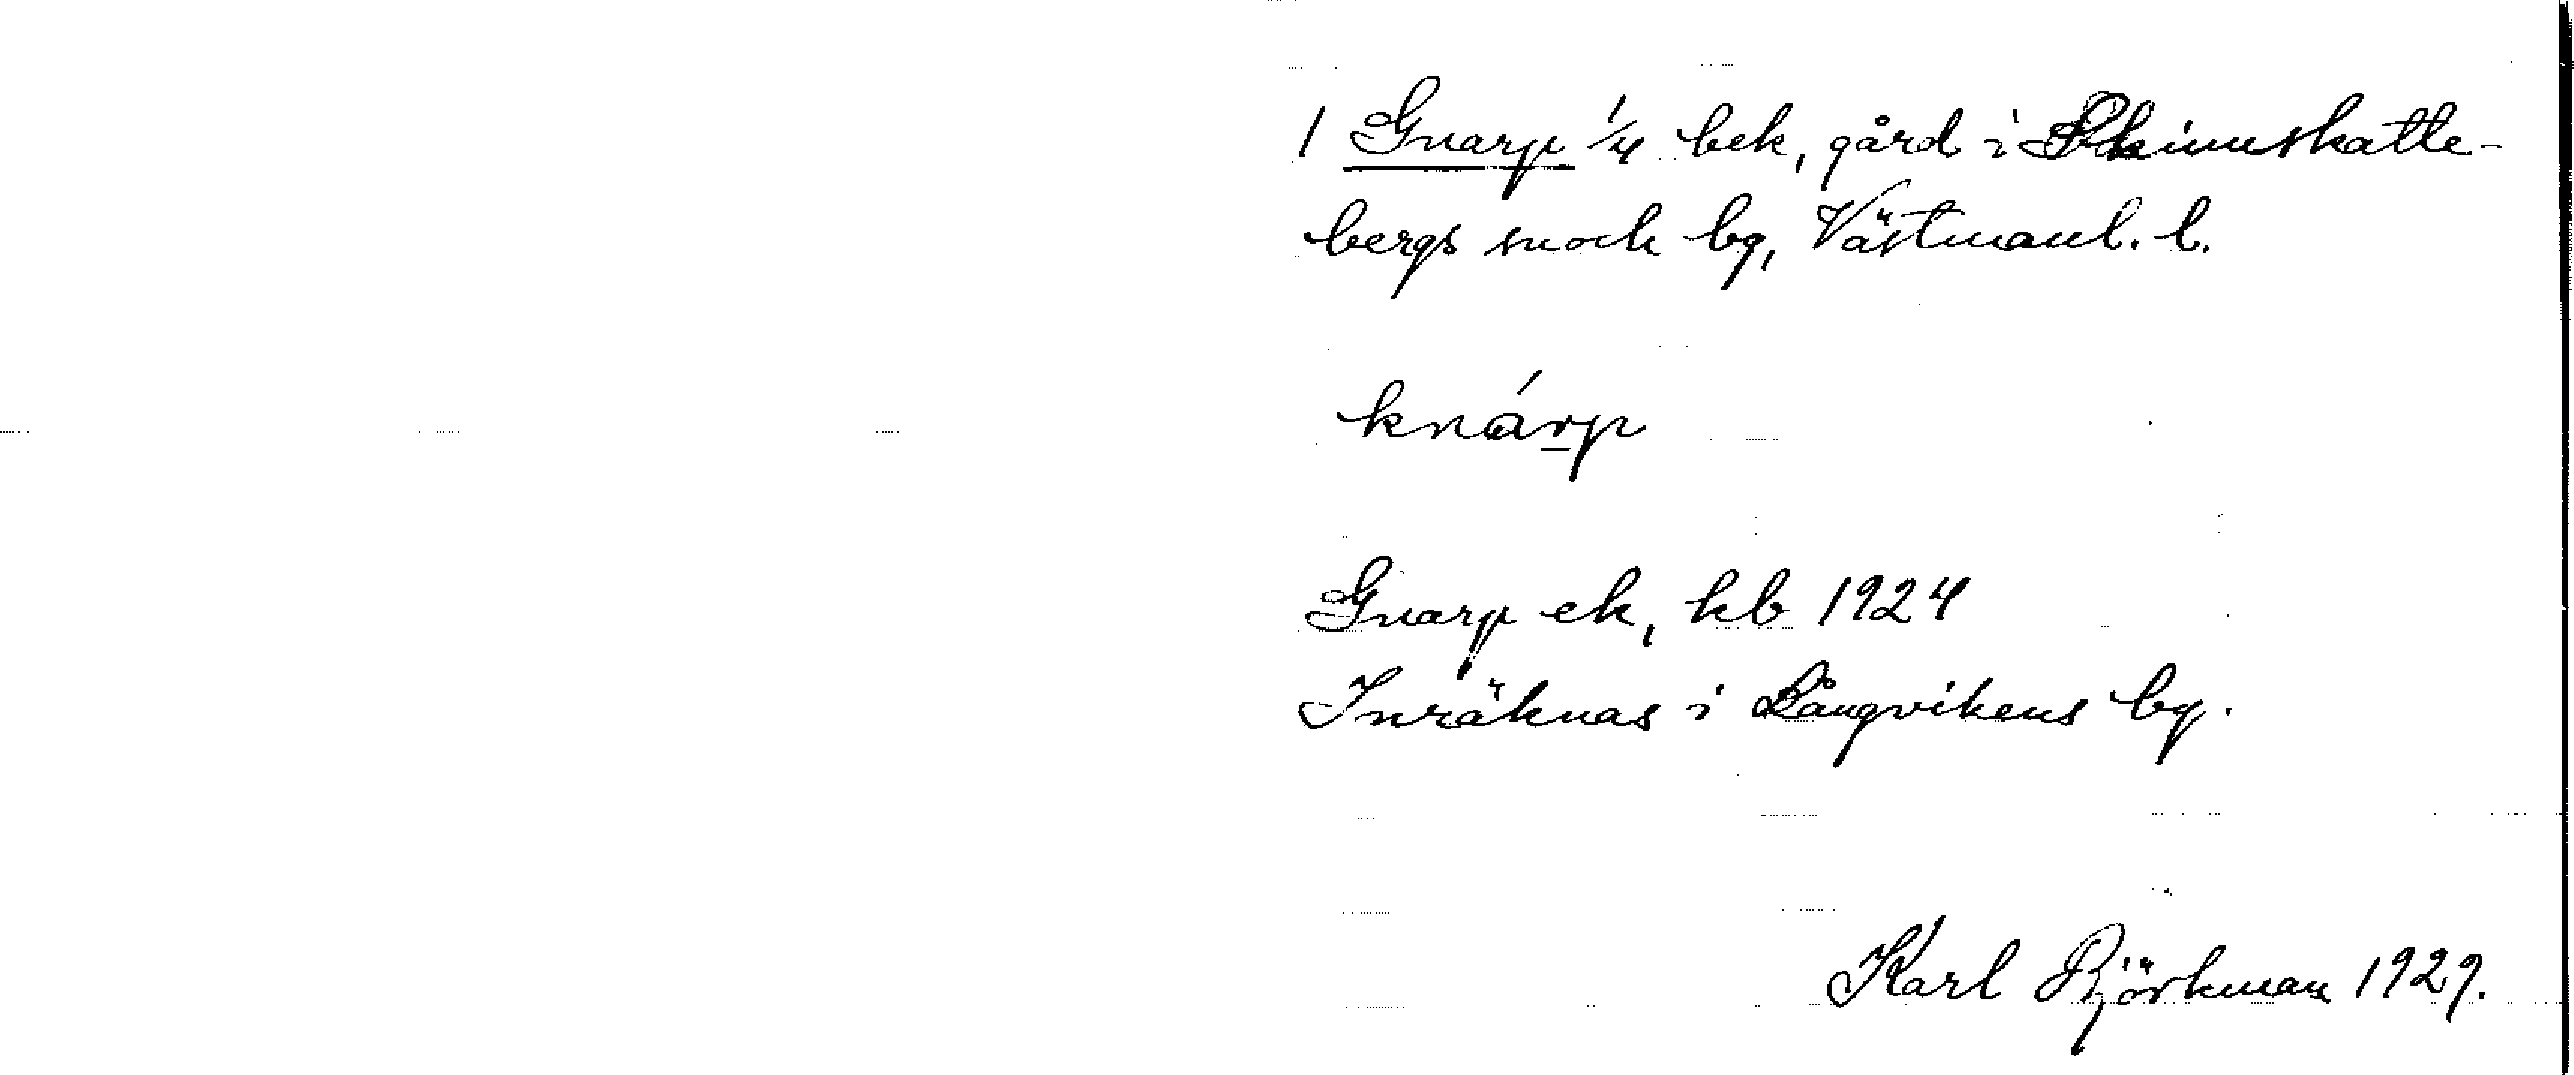 1 Gnarp 1/4 bek, gård i Skinnskatte-
bergs sn och bg, Västmanl. l.
knárp
Gnarp ek, kb 1924
Inräknas i Långvikens by.
Karl Björkman 1929.